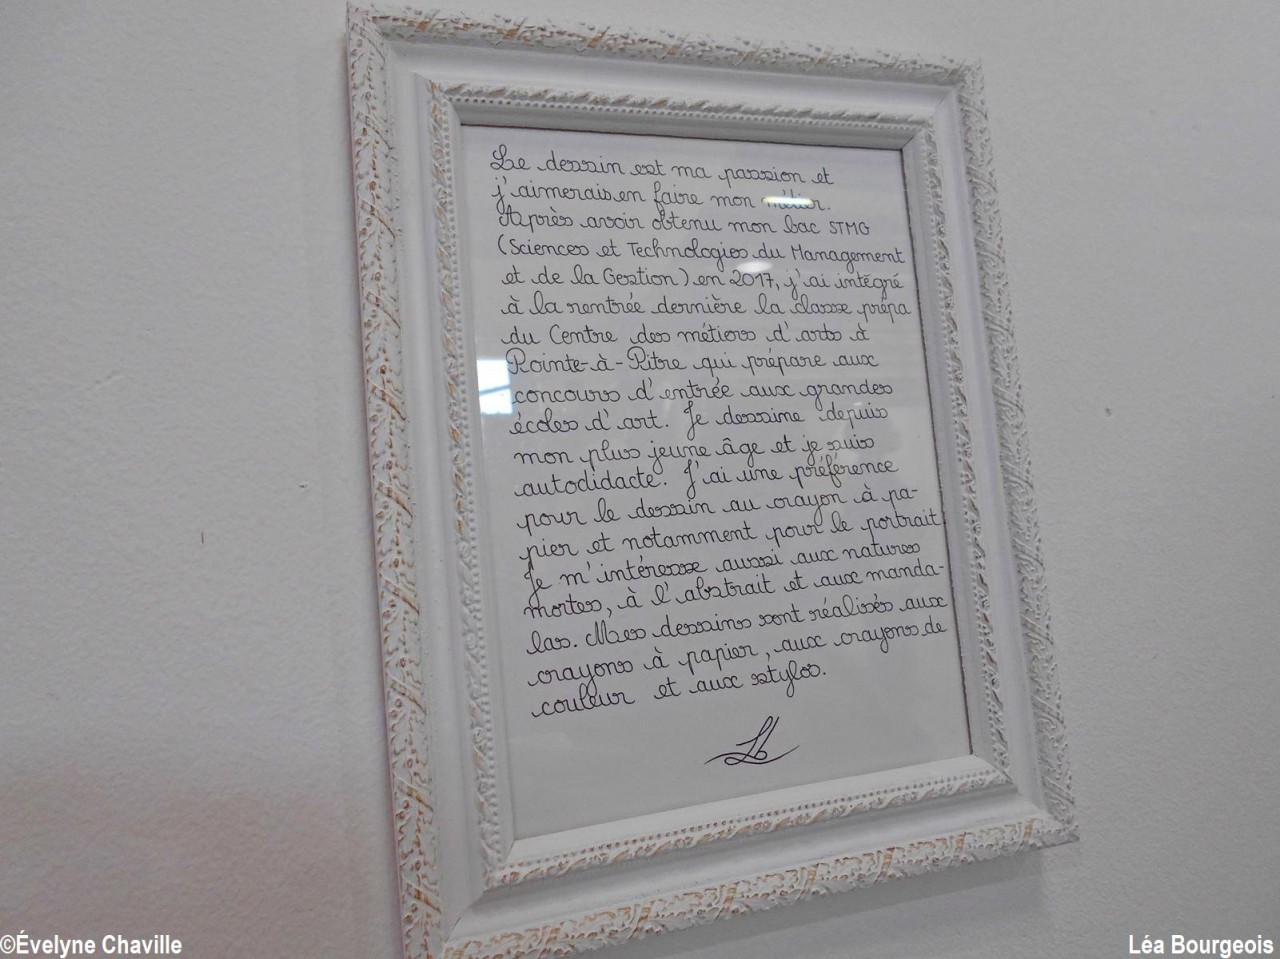 Le dessin est ma passion et
j'aimerais en faire mon métier.
Après avoir obtenu mon bac STMG
(Sciences et Technologies du Management
et de la Gestion) en 2017, j'ai intégré
à la rentrée dernière la classe prépa
du Centre des métiers d'arts à
Pointe-à-Pitre qui prépare aux
concours d'entrée aux grandes
écoles d'art. Je dessine depuis
mon plus jeune âge et je suis
autodidacte. J'ai une préférence
pour le dessin au crayon à pa-
pier et notamment pour le portrait
Je m'intéresse aussi aux natures
mortes, à l'abstrait et aux manda-
las. Mes dessins sont réalisés aux
crayons à papier, aux crayons de
couleur et aux stylos.
Lb
©Évelyne Chaville
Léa Bourgeois